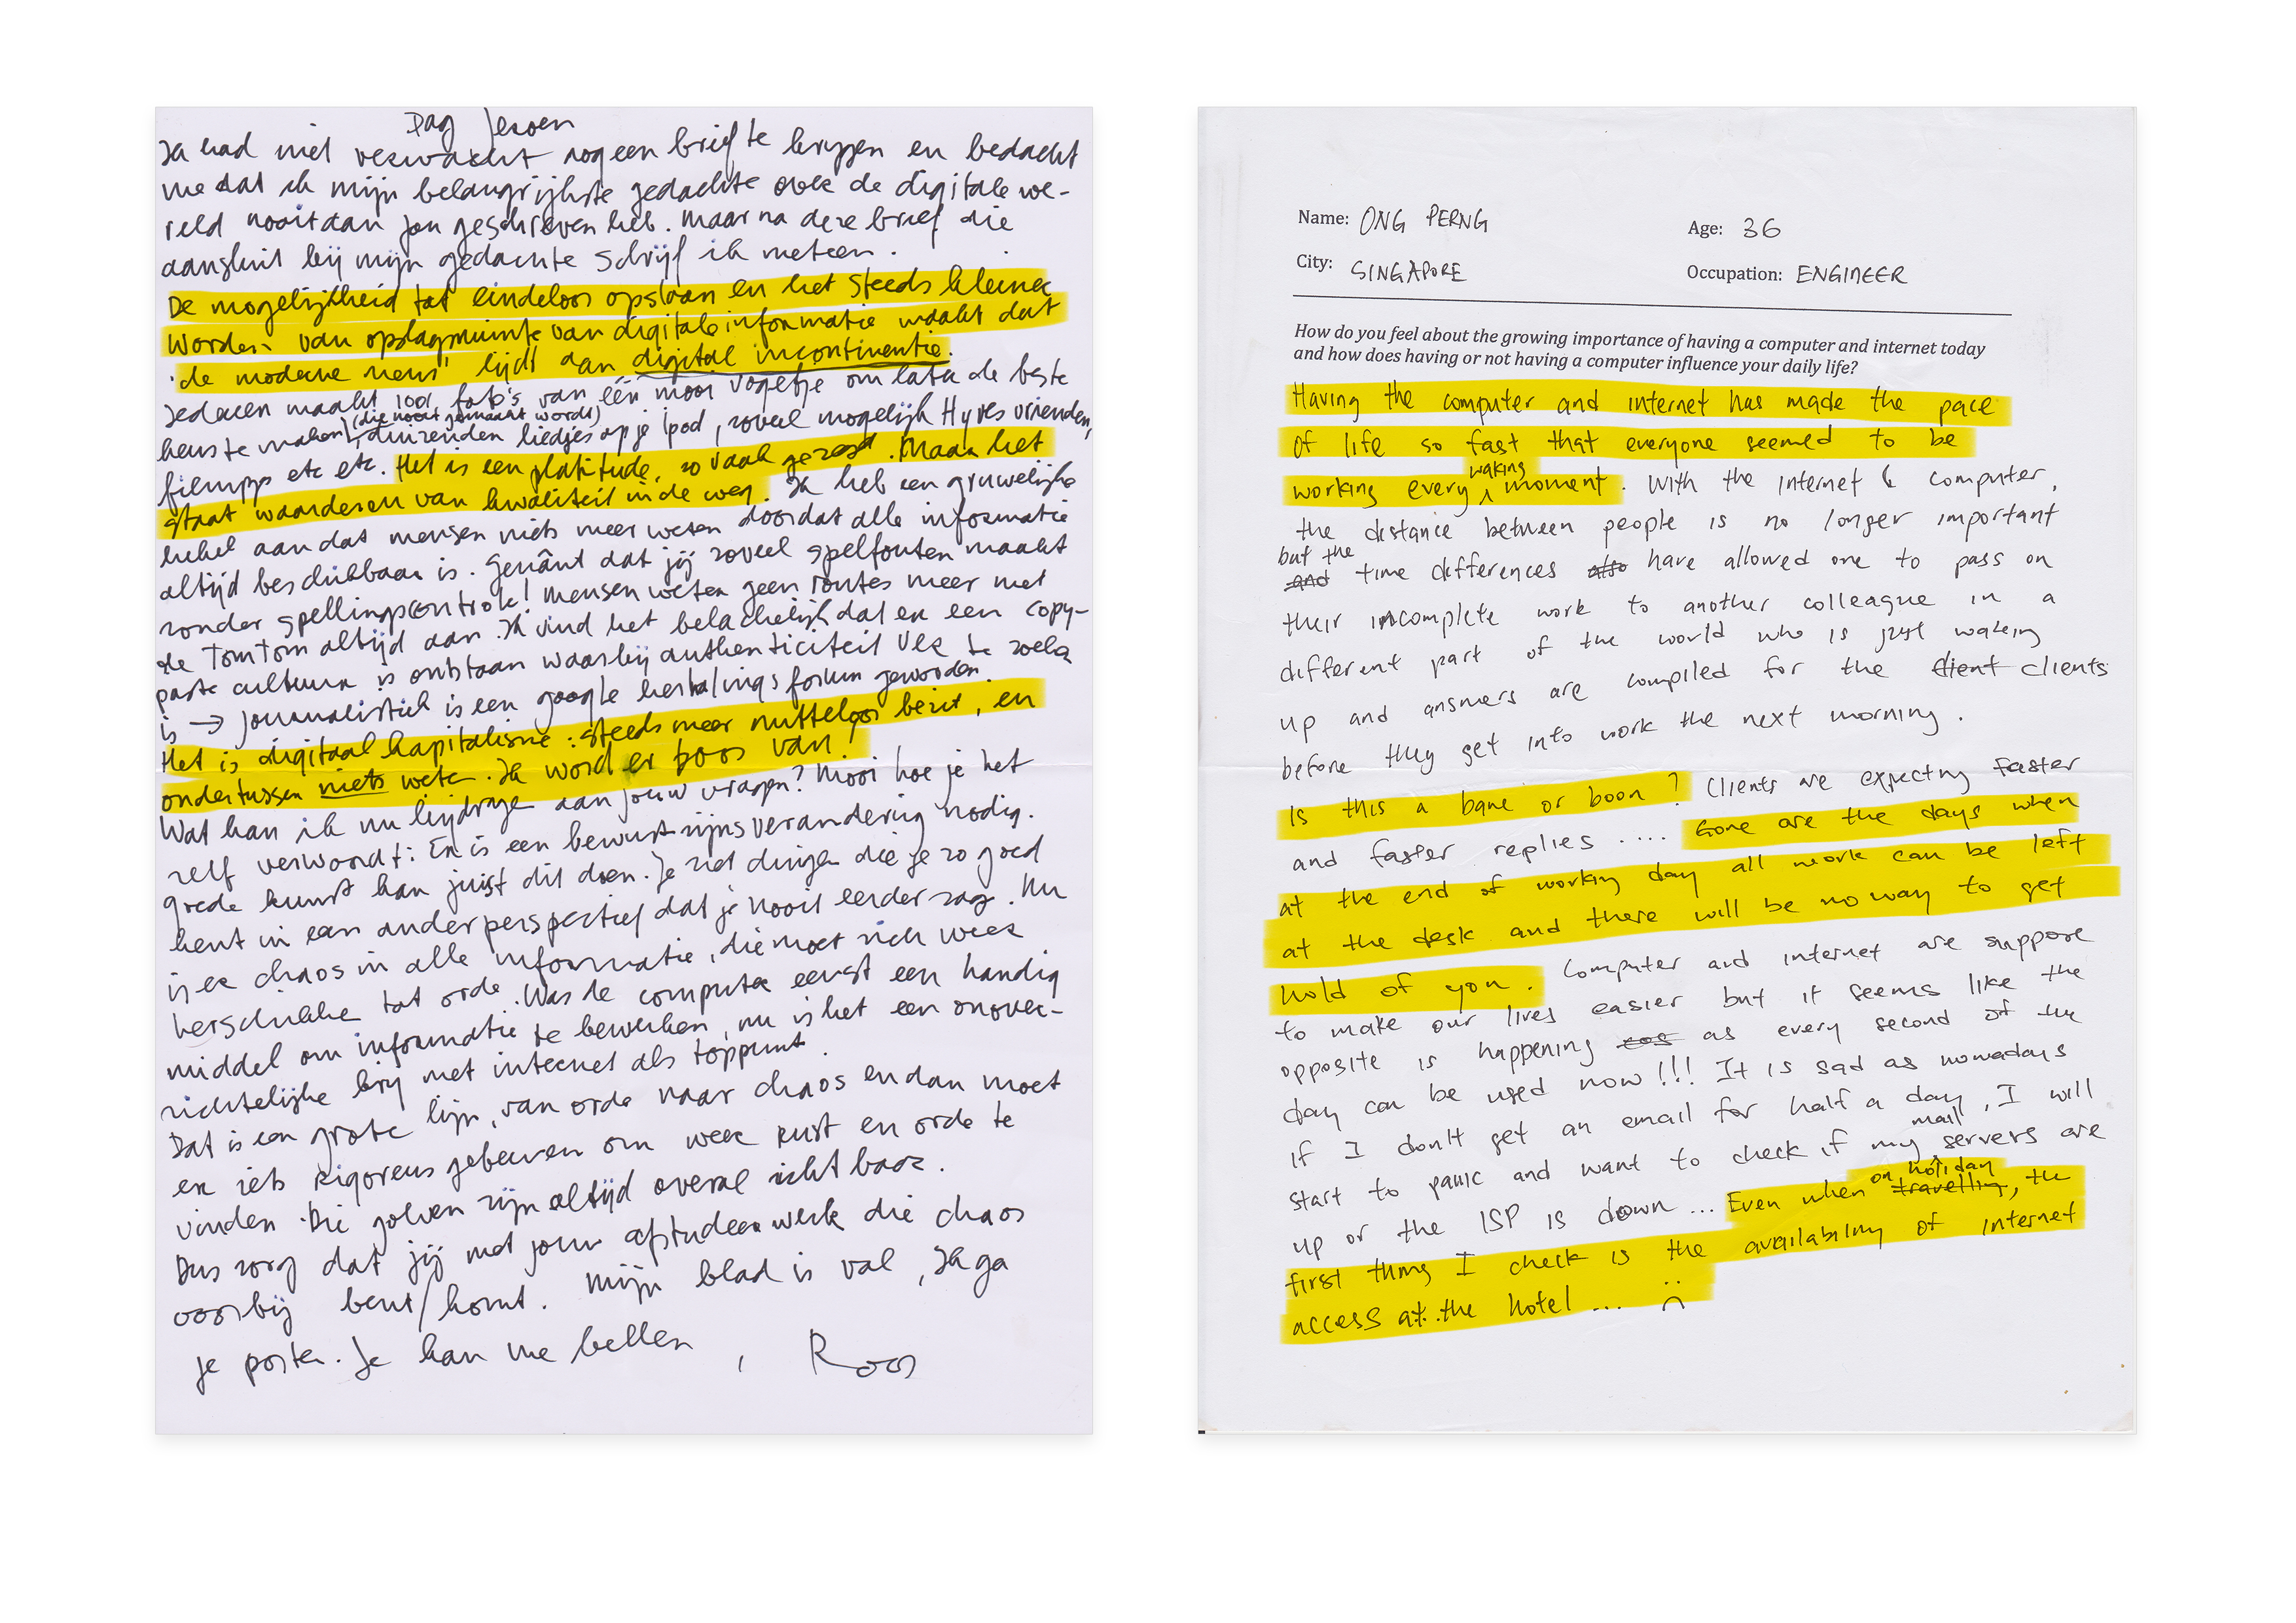 Dag Jeroen
Ik had niet verwacht nog een brief te krijgen en bedacht
me dat ik mijn belangrijkste gedachte over de digitale we-
reld nooit aan jou geschreven heb. Maar na deze brief die
aansluit bij mijn gedachte schrijf ik meteen.
De mogelijkheid tot eindeloos opslaan en het steeds kleiner
worden van opslagruimte van digitale informatie maakt dat
'de moderne mens' lijdt aan digital incontinentie.
Iedereen maakt 1001 foto's van één mooi vogeltje om later de beste
(die nooit gemaakt wordt)
keus te maken, duizenden liedjes op je Ipod, zoveel mogelijk Hyves vrienden,
filmpjes etc etc. Het is een platitude, zo vaak gezegd. Maar het
staat waarderen van kwaliteit in de weg. Ik heb een gruwelijke
hekel aan dat mensen niets meer weten doordat alle informatie
altijd beschikbaar is. Genânt dat jij zoveel spelfouten maakt
zonder spellingscontrole! Mensen weten geen routes meer met
de TomTom altijd aan. Ik vind het belachelijk dat er een copy-
paste cultuur is ontstaan waarbij authenticiteit ver te zoeken
is → journalistiek is een google herhalings forum geworden.
Het is digitaal kapitalisme: steeds meer nutteloos bezit, en
ondertussen niets weten. Ik word er boos van!
Wat kan ik nu bijdragen aan jouw vragen? Mooi hoe je het
zelf verwoordt: Er is een bewustzijnsverandering nodig.
goede kunst kan juist dit doen. Je ziet dingen die je zo goed
kent in een ander perspectief dat je nooit eerder zag. Nu
is er chaos in alle informatie, die moet zich weer
herschikken tot orde. Was de computer eerst een handig
middel om informatie te bewerken, nu is het een onover-
zichtelijke brij met internet als toppunt.
Dat is een grote lijn, van orde naar chaos en dan moet
er iets rigoreus gebeuren om weer rust en orde te
vinden. Die golven zijn altijd overal zichtbaar.
Dus zorg dat jij met jouw afstudeerwerk die chaos
voorbij bent/komt. Mijn blad is vol, Ik ga
je posten. Je kan me bellen, Roos
Name: ONG PERNG
Age: 36
City: SINGAPORE
Occupation: ENGINEER
How do you feel about the growing importance of having a computer and internet today
and how does having or not having a computer influence your daily life?
Having the computer and internet has made the pace
of life so fast that everyone seemed to be
waking
working every moment. With the internet & computer,
the distance between people is no longer important
but the
and time differences also have allowed one to pass on
their incomplete work to another colleague in a
different part of the world who is just waking
up and answers are compiled for the client clients
before they get into work the next morning.
Is this a bane or boon? Clients are expecting faster
and faster replies .... Gone are the days when
at the end of working day all work can be left
at the desk and there will be no way to get
hold of you. Computer and internet are suppose
to make our lives easier but it seems like the
opposite is happening as every second of the
day can be used now!!! It is sad as nowadays
if I don't get an email for half a day, I will
mail
start to panic and want to check if my servers are
on holiday
up or the ISP is down ... Even when travelling, the
first thing I check is the availability of internet
access at the hotel ... :(